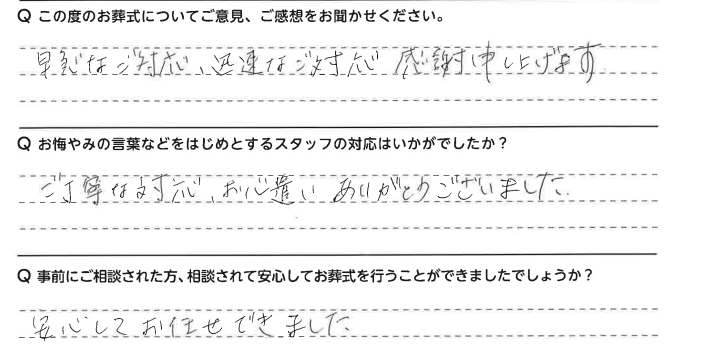 Q この度のお葬式についてご意見、ご感想をお聞かせください。
早急なご対応、迅速なご対応 感謝申し上げます
Q お悔やみの言葉などをはじめとするスタッフの対応はいかがでしたか？
ご丁寧な対応、お心遣い ありがとうございました.
Q 事前にご相談された方、相談されて安心してお葬式を行うことができましたでしょうか？
安心して お任せできました